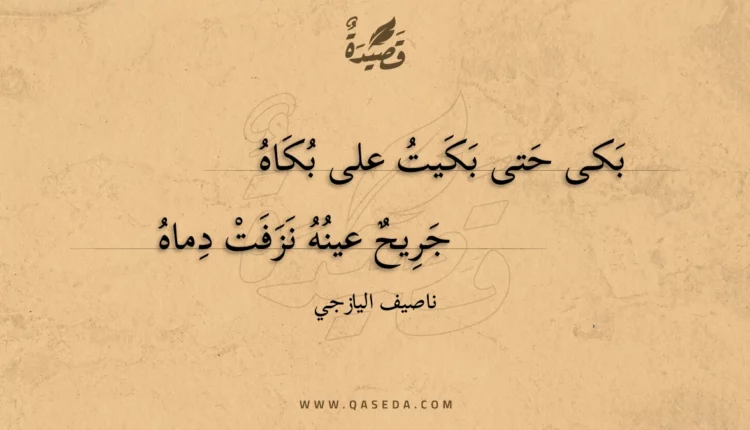 قَصِيدَةٌ
بَكى حَتى بَكَيتُ على بُكَاهُ
جَرِيحٌ عينُهُ نَزَفَتْ دِماهُ
ناصيف اليازجي
WWW.QASEDA.COM